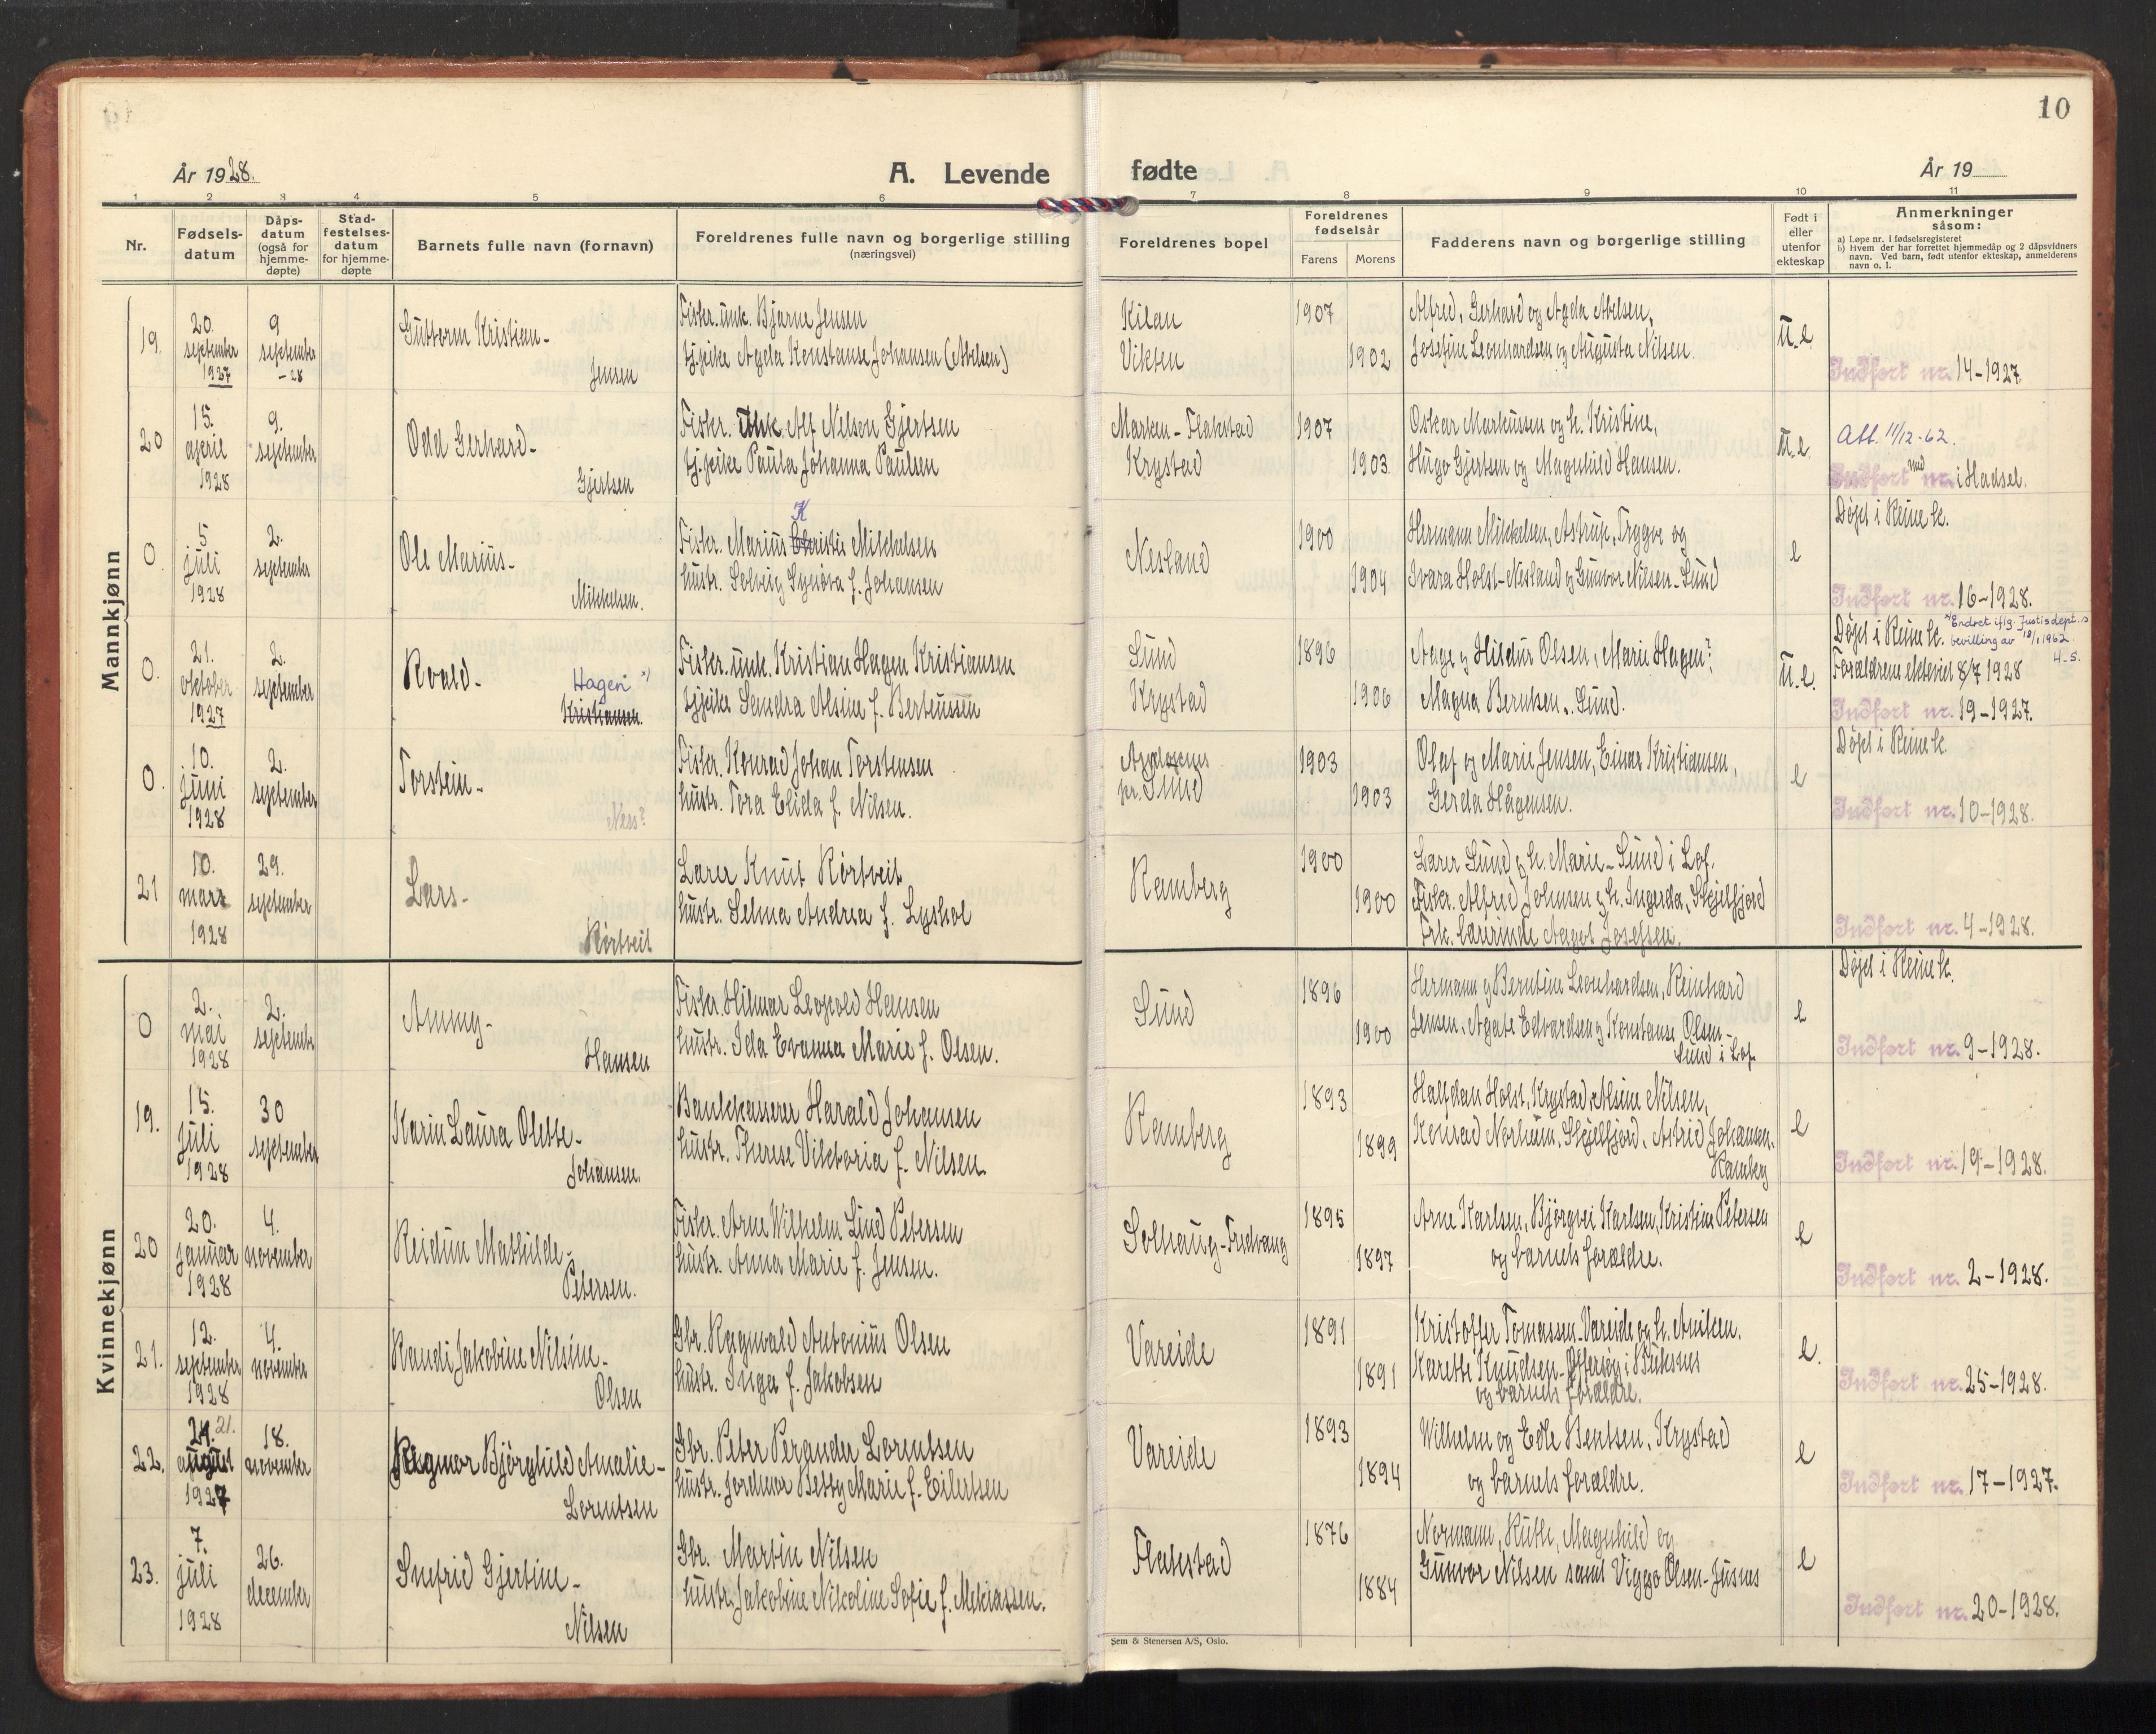 10
År 1928.
A. Levende fødte
År 19
1 2 3 4 5 6 7 8 9 10 11
Nr.
Fødsels-
datum
Dåps-
datum
(også for
hjemme-
døpte)
Stad-
festelses-
datum
for hjemme-
døpte
Barnets fulle navn (fornavn)
Foreldrenes fulle navn og borgerlige stilling
(næringsvei)
Foreldrenes bopel
Foreldrenes
fødselsår
Farens
Morens
Fadderens navn og borgerlige stilling
Født i
eller
utenfor
ekteskap
Anmerkninger
såsom:
a) Løpe nr. i fødselsregisteret
b) Hvem der har forrettet hjemmedåp og 2 dåpsvidners
navn. Ved barn, født utenfor ekteskap, anmelderens
navn o. l.
Mannkjønn
19.
20.
september
1927
9
september
-28
Guttorm Kristian-
Jensen
Fisker. unk. Bjarne Jensen
tj.pike Agda Konstanse Johansen (Abelsen)
Kilan
Vikten
1907
1902
Alfred, Gerhard og Agda Abelsen,
Josefine Leonhardsen og Augusta Nilsen.
u.e.
Indført nr. 14-1927.
20
15.
april
1928
9.
september
Odd Gerhard-
Gjertsen
Fisker. unk. Alf Nelson Gjertsen
tj.pike Paula Johanna Paulsen
Marken-Flakstad
Krystad
1907
1903
Oskar Markussen og h. Kristine,
Hugo Gjertsen og Magnhild Hansen.
u.e.
Att. 11/12-62.
Indført nr. i Hadsel.
0.
5
juli
1928
2.
september
Ole Marius-
Mikkelsen.
K
Fisker. Marius Christis Mikkelsen
hustr. Solveig Synøva f. Johansen
Nesland
1900
1904
Hermann Mikkelsen, Astrup, Trygve og
Ivara Holst-Nesland og Gunvor Nilsen-Sund
e
Døpt i Reine k.
Indført nr. 16-1928.
0.
21.
oktober
1927
2.
september
Roald-
Hagen x)
Kristiansen.
Fisker. unk. Kristian Hagen Kristiansen
tj.pike Sandra Alsine f. Berteussen
Sund
Krystad
1896
1906
Aage og Hildur Olsen, Marie Hagen?
Magna Berntsen. Sund.
u.e.
Døpt i Reine k.
x) Endret iflg. Justisdept.s
bevilling av 18/1 1962.
H.S.
Foreldrene ekteviet 8/7 1928
Indført nr. 19-1927.
0.
10.
juni
1928
2.
september
Torstein-
Ness?
Fisker. Konrad Johan Torstensen
hustr. Tora Elida f. Nilsen.
pr. Sund
1903
1903
Olaf og Marie Jensen, Einar Kristiansen,
Gerda Hågensen.
e
Døpt i Reine k.
Indført nr. 10-1928.
21
10.
mars
1928
29.
september
Lars-
Rørtveit
Lærer Knut Rørtveit
hustr. Selma Andrea f. Lyshol
Ramberg
1900
1900
Lærer Sund og h. Marie-Sund i Lof.
Fisker. Alfred Johnsen og h. Ingerda, Skjelfjord
Frk. lærerinde Aagot Josefsen.
Indført nr. 4-1928.
Kvinnekjønn
0
2.
mai
1928
2.
september
Anny-
Hansen
Fisker. Hilmar Leopold Hansen
hustr. Ida Evanna Marie f. Olsen.
Sund
1896
1900
Hermann og Berntine Leonhardsen, Reinhard
Jensen, Agate Edvardsen og Konstanse Olsen-
Sund i Lof.
e
Døpt i Reine k.
Indført nr. 9-1928.
19.
15.
juli
1928
30
september
Karin Laura Olette-
Johansen.
Bankkasserer Harald Johansen
hustr. Therese Viktoria f. Nilsen
Ramberg
1893
1899
Halfdan Holst, Krystad, Alsine Nilsen,
Konrad Norheim, Skjelfjord, Astrid Johansen.
Ramberg
e
Indført nr. 19-1928.
20
20.
januar
1928
4.
november
Reidun Mathilde-
Petersen.
Fisker. Arne Wilhelm Lind Petersen
hustr. Anna Marie f. Jensen.
Solhaug-Fredvang
1895
1897
Arne Karlsen, Bjørgvei Karlsen, Kristine Petersen
og barnets forældre.
e
Indført nr. 2-1928.
21.
12.
september
1928
4.
november
Randi Jakobine Nilsine-
Olsen
Gbr. Ragnvald Antonius Olsen
hustr. Inga f. Jakobsen
Vareide
1891
1891
Kristoffer Tomassen-Vareide og h. Aniken.
Karette Knudsen-Offersøy i Buksnes
og barnets forældre.
e.
Indført nr. 25-1928.
22.
21. 21.
august
1927
18.
november
Rigmor Bjørghild Amalie-
Lorentsen
Gbr. Peter Perander Lorentsen
hustr. Jordmor Betsy Marie f. Eilertsen
Vareide
1893
1894
Wilhelm og Edle Bentsen, Krystad
og barnets forældre.
e
Indført nr. 17-1927.
23.
7.
juli
1928
26.
december
Snefrid Gjertine-
Nilsen
Gbr. Martin Nilsen
hustr. Jakobine Nikoline Sofie f. Mekiassen.
Flakstad
1876
1884
Normann, Ruth, Magnhild og
Gunvor Nilsen samt Viggo Olsen-Jusnes
e
Indført nr. 20-1928.
Sem & Stenersen A/S, Oslo.